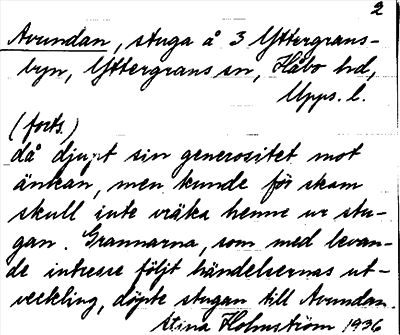 2
Avundan, stuga å 3 Yttergrans-
byn, Yttergrans sn, Håbo hd,
Upps. l.
(forts.)
då djupt sin generositet mot
änkan, men kunde för skam
skull inte vräka henne ur stu-
gan. Grannarna, som med levan-
de intresse följt händelsernas ut-
veckling, döpte stugan till Avundan.
Stina Holmström 1936